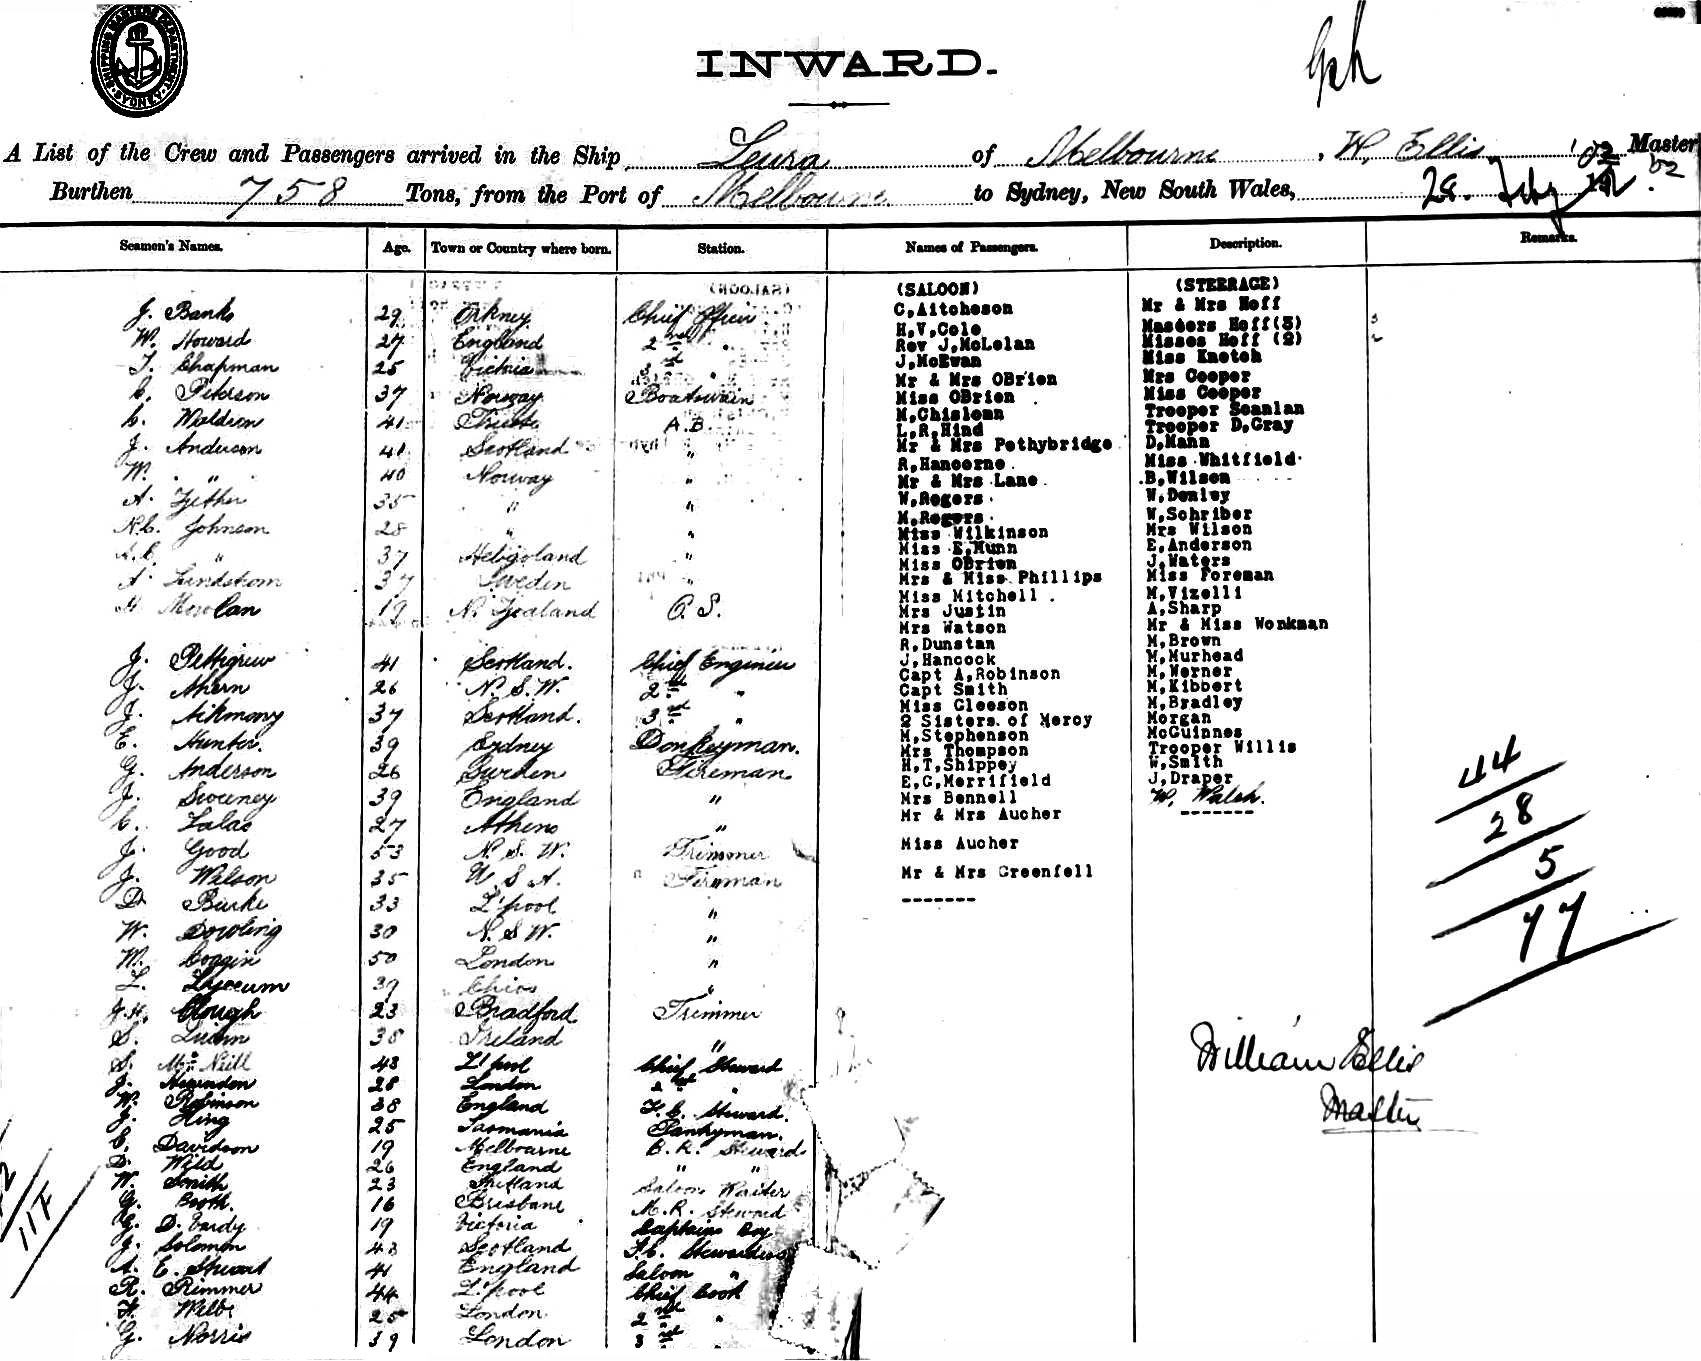 SHIPPING MASTERS DEPARTMENT SYDNEY
INWARD.
A List of the Crew and Passengers arrived in the Ship Leura of Melbourne, W. Ellis '02 Master
Burthen 758 Tons, from the Port of Melbourne to Sydney, New South Wales, 28. Feby '02
Seamen's Names. Age. Town or Country where born. Station. Names of Passengers. Description. Remarks.
J. Banks 29 Orkney Chief Officer
W. Howard 27 England 2nd "
T. Chapman 25 Victoria 3rd "
C. Peterson 37 Norway Boatswain
C. Waldren 41 Trieste A.B.
J. Anderson 41 Scotland "
W. " 40 Norway "
A. 35 " "
N.C. Johnson 28 " "
A.C. " 37 Heligoland "
A. Lindstrom 37 Sweden "
H. 19 N. Zealand O.S.
J. Pettigrew 41 Scotland. Chief Engineer
J. Ahern 26 N.S.W. 2nd "
J. Aikmany 37 Scotland. 3rd "
E. Hunter. 39 Sydney Donkeyman.
G. Anderson 26 Sweden Fireman
J. Sweeney 39 England "
C. Lalas 27 Athens "
J. Good 53 N.S.W. Trimmer
J. Wilson 35 U.S.A. Fireman
D. Burke 33 L'pool "
W. Dowling 30 N.S.W. "
W. Coggin 50 London "
L. Lyceum 39 Chios "
J.H. Clough 23 Bradford Trimmer
S. Quinn 38 Ireland "
S. McNeill 43 L'pool Chief Steward
J. Herendon 28 London 2nd "
W. Robinson 38 England F.C. Steward.
J. King 25 Tasmania Pantryman.
C. Davidson 19 Melbourne B.R. Steward
D. Wild 26 England " "
W. Smith 23 Saloon Waiter
G. Booth. 16 Brisbane M.R. Steward
G. D. Vardy 19 Victoria Captains Boy
J. Solomon 43 Scotland F.C. Stewardess
A. E. Stewart 41 England Saloon "
R. Rimmer 44 L'pool Chief Cook
F. Webb 25 London 2nd "
G. Norris 39 London 3rd "
(SALOON)
C,Aitcheson
H,V,Cole
Rev J,McLelan
J,McEwan
Mr & Mrs OBrien
Miss OBrien
M,Chislean
L,R,Hind
Mr & Mrs Pethybridge
R,Hancorne
Mr & Mrs Lane
W,Rogers
M,Rogers
Miss Wilkinson
Miss E,Munn
Miss OBrien
Mrs & Miss Phillips
Miss Mitchell
Mrs Justin
Mrs Watson
R,Dunstan
J,Hancock
Capt A,Robinson
Capt Smith
Miss Gleeson
2 Sisters of Mercy
M,Stephenson
Mrs Thompson
H,T,Shippey
E,G,Merrifield
Mrs Bennell
Mr & Mrs Aucher
Miss Aucher
Mr & Mrs Greenfell
-------
(STEERAGE)
Mr & Mrs Hoff
Masters Hoff(3)
Misses Hoff (2)
Miss Knetch
Mrs Cooper
Miss Cooper
Trooper Scanlan
Trooper D,Gray
D,Mann
Miss Whitfield
B,Wilson
W,Denley
W,Schriber
Mrs Wilson
E,Anderson
J,Waters
Miss Foreman
M,Vizelli
A,Sharp
Mr & Miss Wonkman
M,Brown
M,Murhead
M,Werner
M,Kibbert
M,Bradley
Morgan
McGuinnes
Trooper Willis
W,Smith
J,Draper
W. Walsh.
-------
44
28
5
77
William Ellis
Master
117